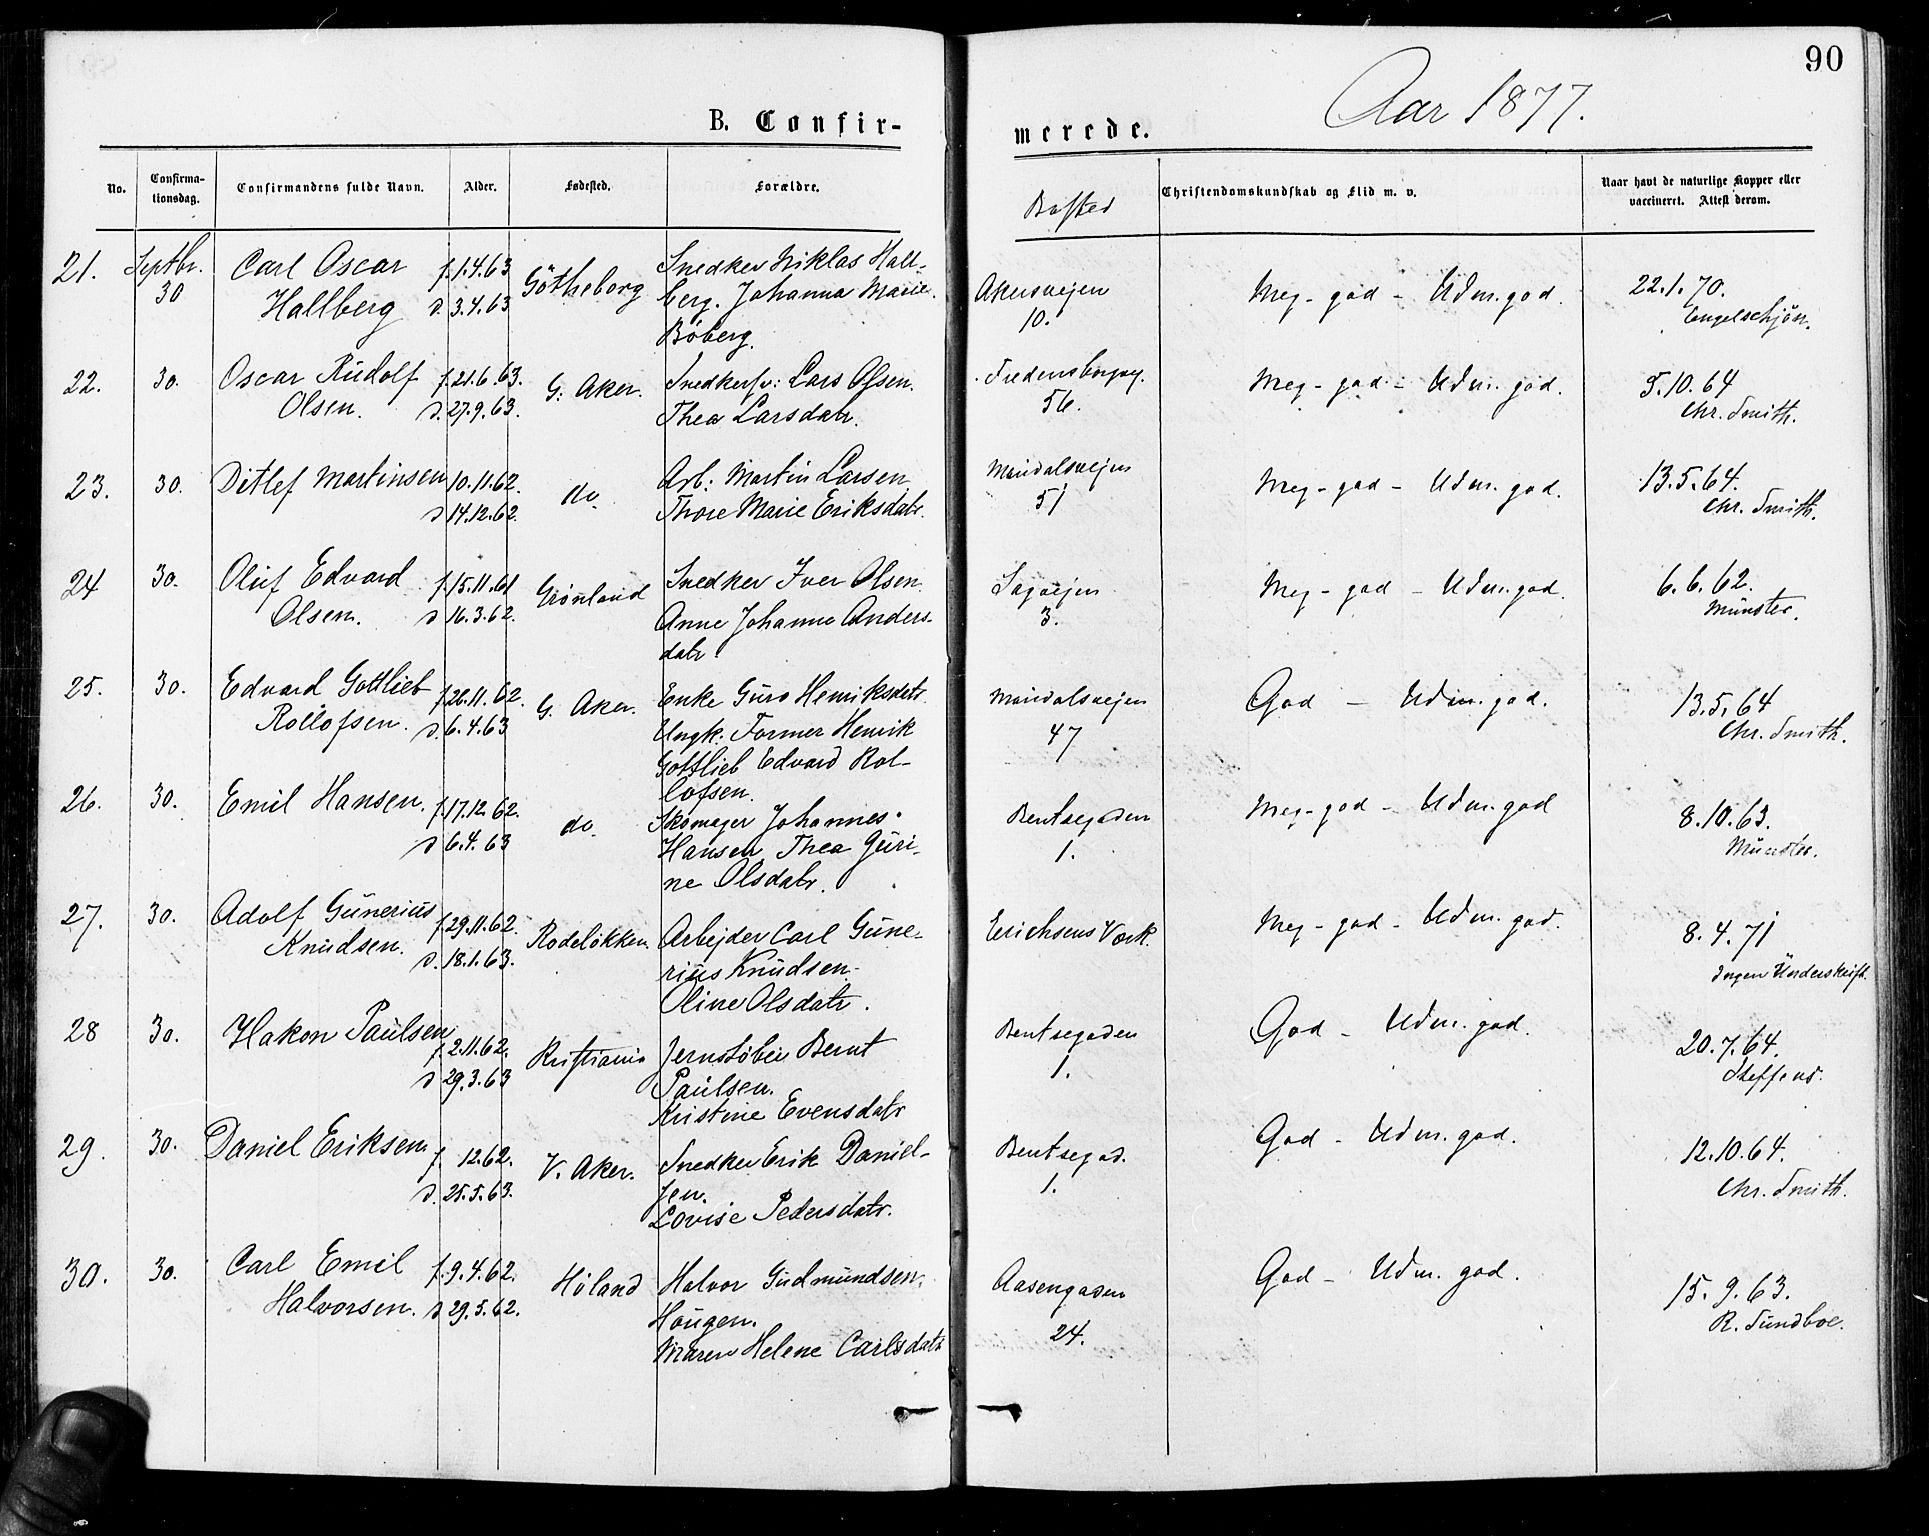 90
Aar 1877.
B. Confir-
merede.
No.
Confirma-
tionsdag.
Confirmandens fulde Navn.
Alder.
Fødested.
Forældre.
Bosted
Christendomskundskab og Flid m. v.
Naar havt de naturlige Kopper eller
vaccineret. Attest derom.
21. Septbr. Carl Oscar f. 1.4.63 Götheborg Snedker Niklas Hall- Akersvejen Meg-god - Udm. god. 22.1.70.
30 Hallberg d. 3.4.63 berg. Johanna Marie 10. Engelschjön.
Böberg.
22. 30. Oscar Rudolf f. 21.6.63. G. Aker. Snedkersv: Lars Olsen. Fredensborgv. Meg-god - Udm. god. 5.10.64
Olsen. d. 27.9.63. Thea Larsdatr. 56. Chr. Smith.
23. 30. Ditlef Martinsen 10.11.62. do. Arb: Martin Larsen Maridalsvejen Meg-god - Udm. god. 13.5.64.
d 14.12.62. Thore Marie Eriksdatr. 51 Chr. Smith.
24 30. Oluf Edvard f. 15.11.61 Grönland Snedker Iver Olsen Sagvejen Meg-god - Udm. god. 6.6.62.
Olsen. d 16.3.62. Anne Johanne Anders- 3. Münster.
datr.
25. 30. Edvard Gottlieb f. 26.11.62. G. Aker. Enke Guro Henriksdatr Maridalsvejen God - Udm. god. 13.5.64
Rollofsen. d. 6.4.63 Ungk. Former Henrik 47 Chr. Smith.
Gottlieb Edvard Rol-
lofsen.
26. 30. Emil Hansen. f. 17.12.62. do. Skomager Johannes Bentsegaden Meg-god - Udm. god 8.10.63.
d 6.4.63 Hansen Thea Guri- 1. Münster.
ne Olsdatr.
27. 30. Adolf Gunerius f. 29.11.62. Rodelökken Arbejder Carl Gune- Erichsens Værk. Meg-god - Udm. god. 8.4.71
Knudsen. d. 18.1.63. rius Knudsen. Ingen Underskrift.
Oline Olsdatr.
28 30. Hakon Paulsen f. 2.11.62. Kristiania Jernstöber Bernt Bentsegaden God - Udm. god. 20.7.64.
d 29.3.63 Paulsen. 1. Steffens.
Kristine Evensdatr
29. 30. Daniel Eriksen f. 12.62. V. Aker. Snedker Erik Daniel- Bentsegad. God - Udm. god. 12.10.64.
d. 25.5.63. sen. 1. Chr. Smith.
Lovise Pedersdatr.
30. 30. Carl Emil f. 9.4.62. Höland Halvor Gudmundsen Aasengaden God - Udm. god. 15.9.63.
Halvorsen. d 29.5.62. Haugen. 24. R. Sundboe.
Maren Helene Carlsdatr